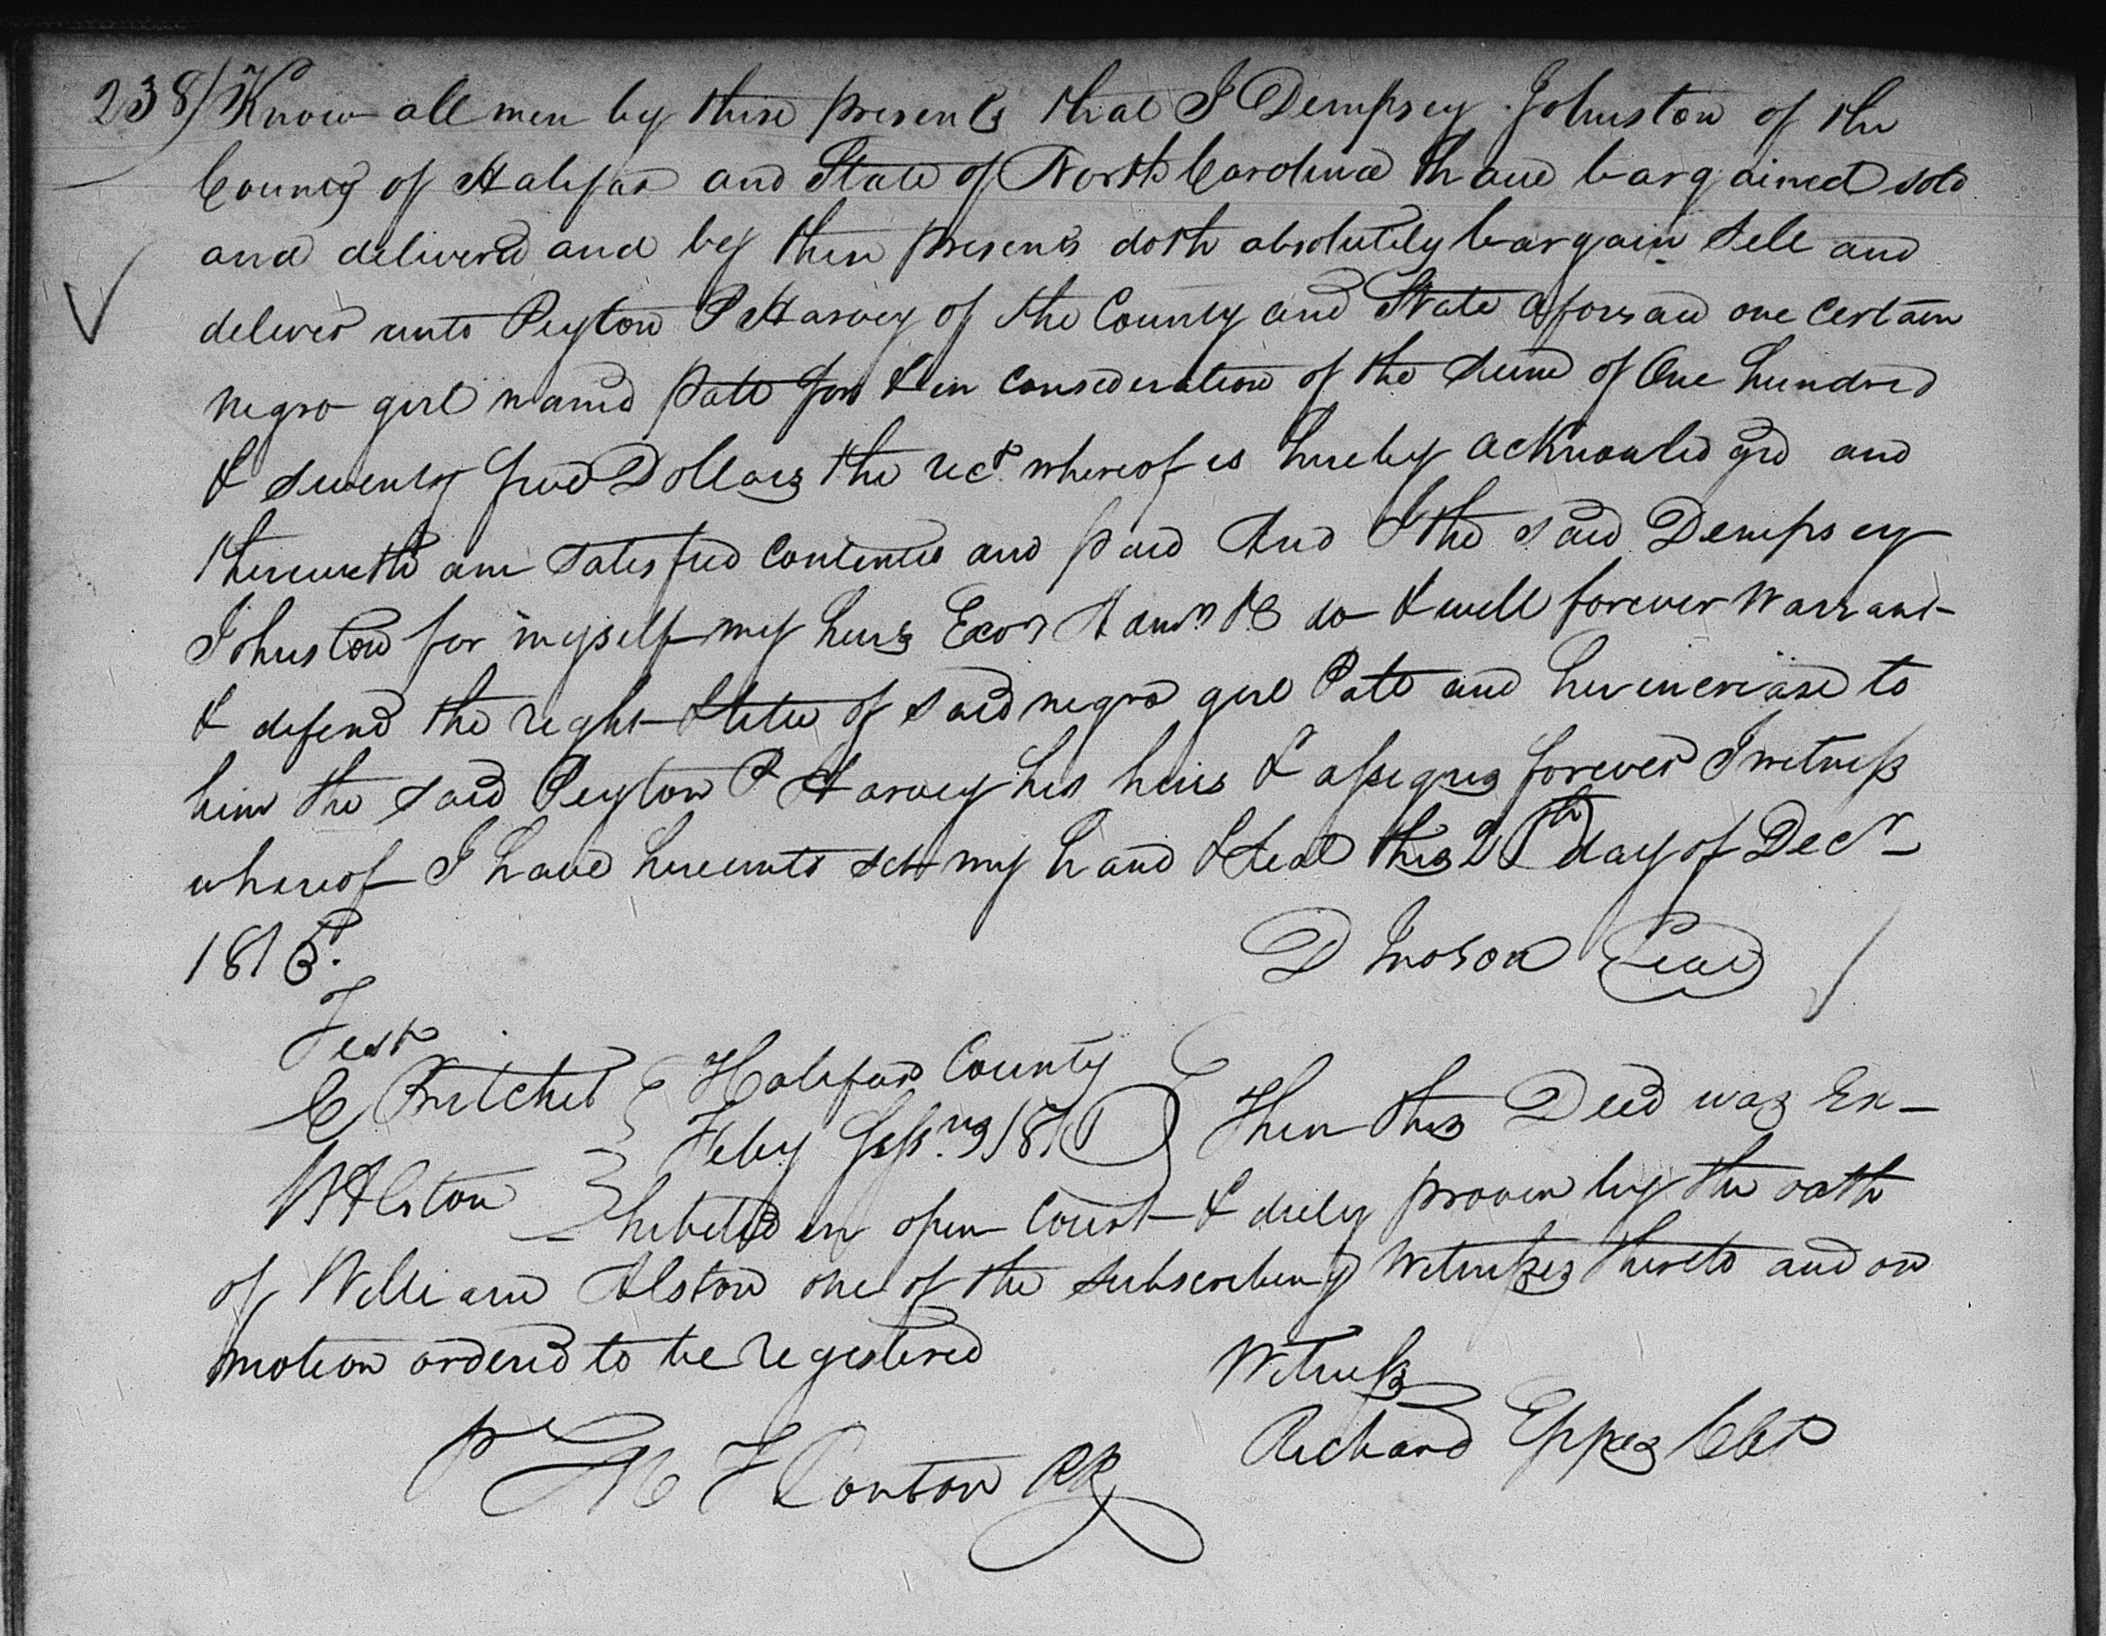 238) Know all men by these presents that I Dempsey Johnston of the
County of Halifax and State of North Carolina have bargained sold
and deliverd and by these presents doth absolutely bargain sell and
deliver unto Peyton P Harvey of the County and State aforesaid one certain
negro girl named Patt for & in consideration of the sume of One hundred
& seventy five Dollars the rect whereof is hereby acknowledged and
therewith am satisfied contented and paid And I the said Dempsey
Johnston for myself my heirs Exors Admrs &c do & will forever warrant
& defend the right & title of said negro girl Patt and her increase to
him the said Peyton P Harvey his heirs & assigns forever I witness
whereof I have hereunto set my hand & seal this day of Decr
1815.
D Jnoson Seal
Test
C Pritchet Halifax County
Feby Sessns Then this Deed was Ex-
W Alston hibited in open Court & duly proven by the oath
of William Alston one of the subscribing witnesses thereto and on
motion ordered to be registered
Witness
Richard Eppes Clk
PR